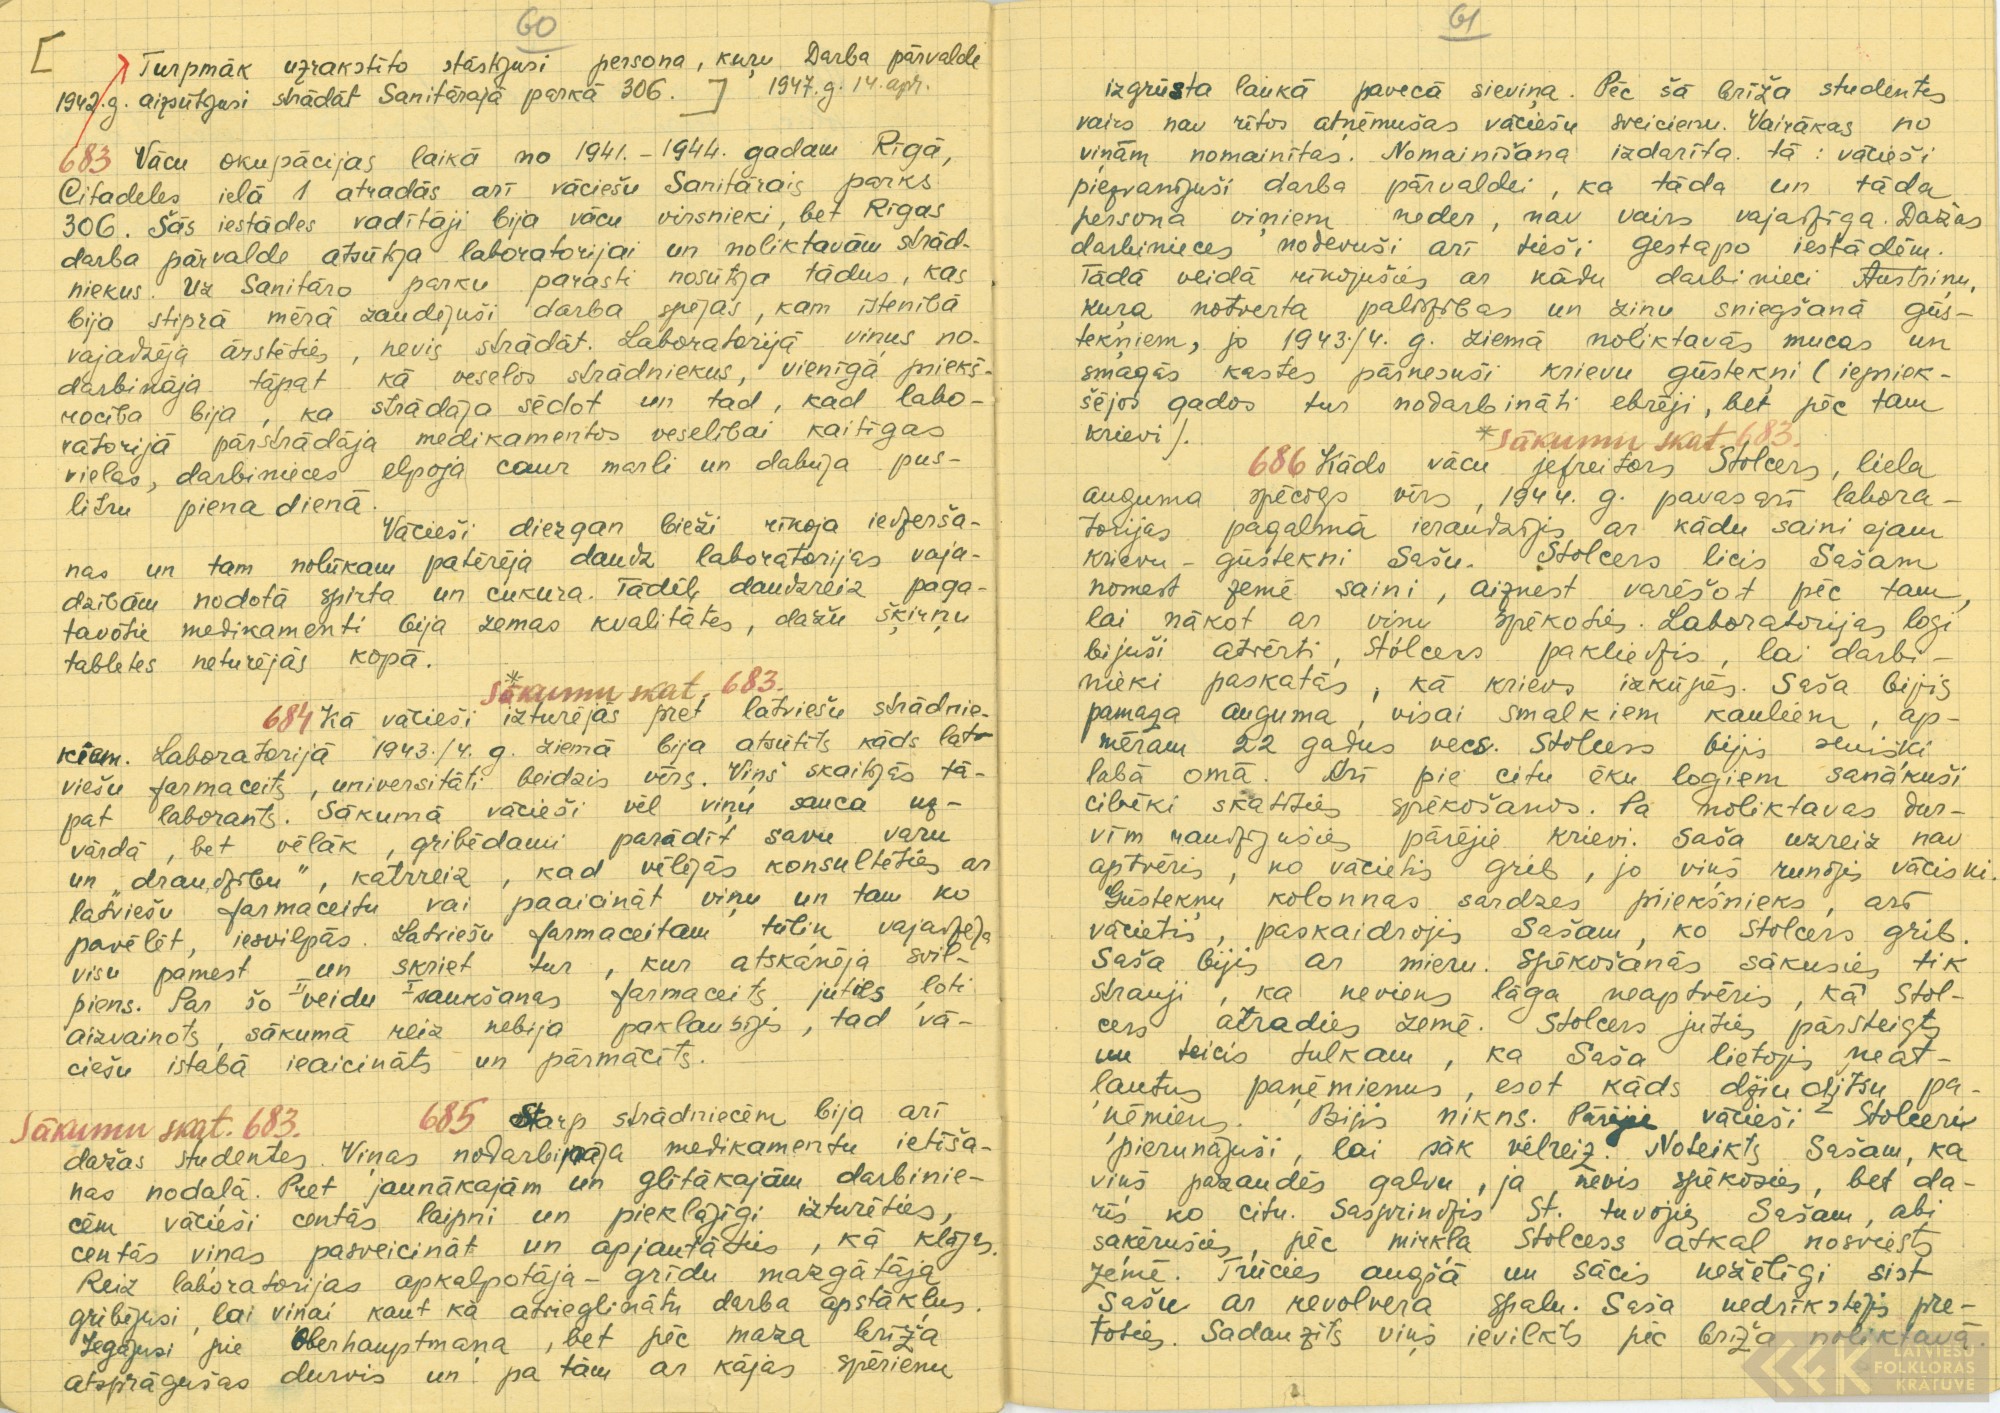 60
[ Turpmāk uzrakstīto stāstījusi persona, kuŗu Darba pārvalde
1942.g. aizsūtījusi strādāt Sanitārajā parkā 306. ] 1947.g. 14. apr.
683 Vācu okupācijas laikā no 1941. – 1944. gadam Rīgā,
Citadeles ielā 1 atradās arī vāciešu Sanitārais parks
306. Šās iestādes vadītāji bija vācu virsnieki, bet Rīgas
darba pārvalde atsūtīja laboratorijai un noliktavām strād-
niekus. Uz Sanitāro parku parasti nosūtīja tādus, kas
bija stiprā mērā zaudējuši darba spējas, kam īstenībā
vajadzēja ārstēties, nevis strādāt. Laboratorijā viņus no-
darbināja tāpat kā veselos strādniekus, vienīgā priekš-
rocība bija, ka strādāja sēdot un tad, kad labo-
ratorijā pārstrādāja medikamentos veselībai kaitīgas
vielas, darbinieces elpoja caur marli un dabūja pus-
litru piena dienā.
Vācieši diezgan bieži rīkoja iedzerša-
nas un tam nolūkam patērēja daudz laboratorijas vaja-
dzībām nodotā spirta un cukura. Tādēļ daudzreiz paga-
tavotie medikamenti bija zemas kvalitātes, dažu šķirņu
tabletes neturējās kopā.
* Sākumu skat. 683.
684 Kā vācieši izturējās pret latviešu strādnie-
kiem. Laboratorijā 1943./4. g. ziemā bija atsūtīts kāds lat-
viešu farmaceits, universitāti beidzis vīrs. Viņš skaitījās tā-
pat laborants. Sākumā vācieši vēl viņu sauca uz-
vārdā, bet vēlāk, gribēdami parādīt savu varu
un "draudzību", katrreiz, kad vēlējās konsultēties ar
latviešu farmaceitu vai paaicināt viņu un tam ko
pavēlēt, iesvilpās. Latviešu farmaceitam tūliņ vajadzēja
visu pamest un skriet tur, kur atskanēja svil-
piens. Par šo II veidu I saukšanas farmaceits juties ļoti
aizvainots, sākumā reiz nebija paklausījis, tad vā-
ciešu istabā ieaicināts un pārmācīts.
Sākumu skat. 683. 685 Starp strādniecēm bija arī
dažas studentes. Viņas nodarbināja medikamentu ietīša-
nas nodaļā. Pret jaunākajām un glītākajām darbinie-
cēm vācieši centās laipni un pieklājīgi izturēties,
centās viņas pasveicināt un apjautāties, kā klājas.
Reiz laboratorijas apkalpotāja – grīdu mazgātāja
gribējusi, lai viņai kaut kā atvieglinātu darba apstākļus.
Iegājusi pie Oberhauptmaņa, bet pēc maza brīža
atsprāgušas durvis un pa tām ar kājas spērienu
61
izgrūsta laukā pavecā sieviņa. Pēc šā brīža studentes
vairs nav rītos atņēmušas vāciešu sveicienu. Vairākas no
viņām nomainītas. Nomainīšana izdarīta tā: vācieši
piezvanījuši darba pārvaldei, ka tāda un tāda
persona viņiem neder, nav vairs vajadzīga. Dažas
darbinieces nodevuši arī tieši gestapo iestādēm.
Tādā veidā rīkojušies ar kādu darbinieci Austriņu,
kuŗa notverta palīdzības un ziņu sniegšanā gūs-
tekņiem, jo 1943./4. g. ziemā noliktavās mucas un
smagās kastes pārnesuši krievu gūstekņi (iepriek-
šējos gados tur nodarbināti ebrēji, bet pēc tam
krievi).
* Sākumu skat. 683.
686 Kāds vācu jefreitors Stolcers, liela
auguma spēcīgs vīrs, 1944. g. pavasarī labora-
torijas pagalmā ieraudzījis ar kādu saini ejam
krievu – gūstekni Sašu. Stolcers licis Sašam
nomest zemē saini, aiznest varēšot pēc tam,
lai nākot ar viņu spēkoties. Laboratorijas logi
bijuši atvērti, Stolcers pakliedzis, lai darbi-
nieki paskatās, kā krievs izkūpēs. Saša bijis
pamaza auguma, visai smalkiem kauliem, ap-
mēram 22 gadus vecs. Stolcers bijis sevišķi
labā omā. Arī pie citu ēku logiem sanākuši
cilvēki skatīties spēkošanos. Pa noliktavas dur-
vīm raudzījušies pārējie krievi. Saša uzreiz nav
aptvēris, ko vācietis grib, jo viņš runājis vāciski.
Gūstekņu kolonnas sardzes priekšnieks, arī
vācietis, paskaidrojis Sašam, ko Stolcers grib.
Saša bijis ar mieru. Spēkošanās sākusies tik
strauji, ka neviens lāga neaptvēris, kā Stol-
cers atradies zemē. Stolcers juties pārsteigts
un teicis tulkam, ka Saša lietojis neat-
ļautus paņēmienus, esot kāds džiudžitsu pa-
ņēmiens. Bijis nikns. Pārējie vācieši Stolceru
pierunājuši, lai sāk vēlreiz. Noteikts Sašam, ka
viņš pazaudēs galvu, ja nevis spēkosies, bet da-
rīs ko citu. Saspringdzis St. tuvojies Sašam, abi
sakērušies, pēc mirkļa Stolcers atkal nosviests
zemē. Trūcies augšā un sācis nežēlīgi sist
Sašu ar revolvera spalu. Saša nedrīkstējis pre-
toties. Sadauzīts viņš ievilkts pēc brīža noliktavā.
LATVIEŠU
FOLKLORAS
KRĀTUVE